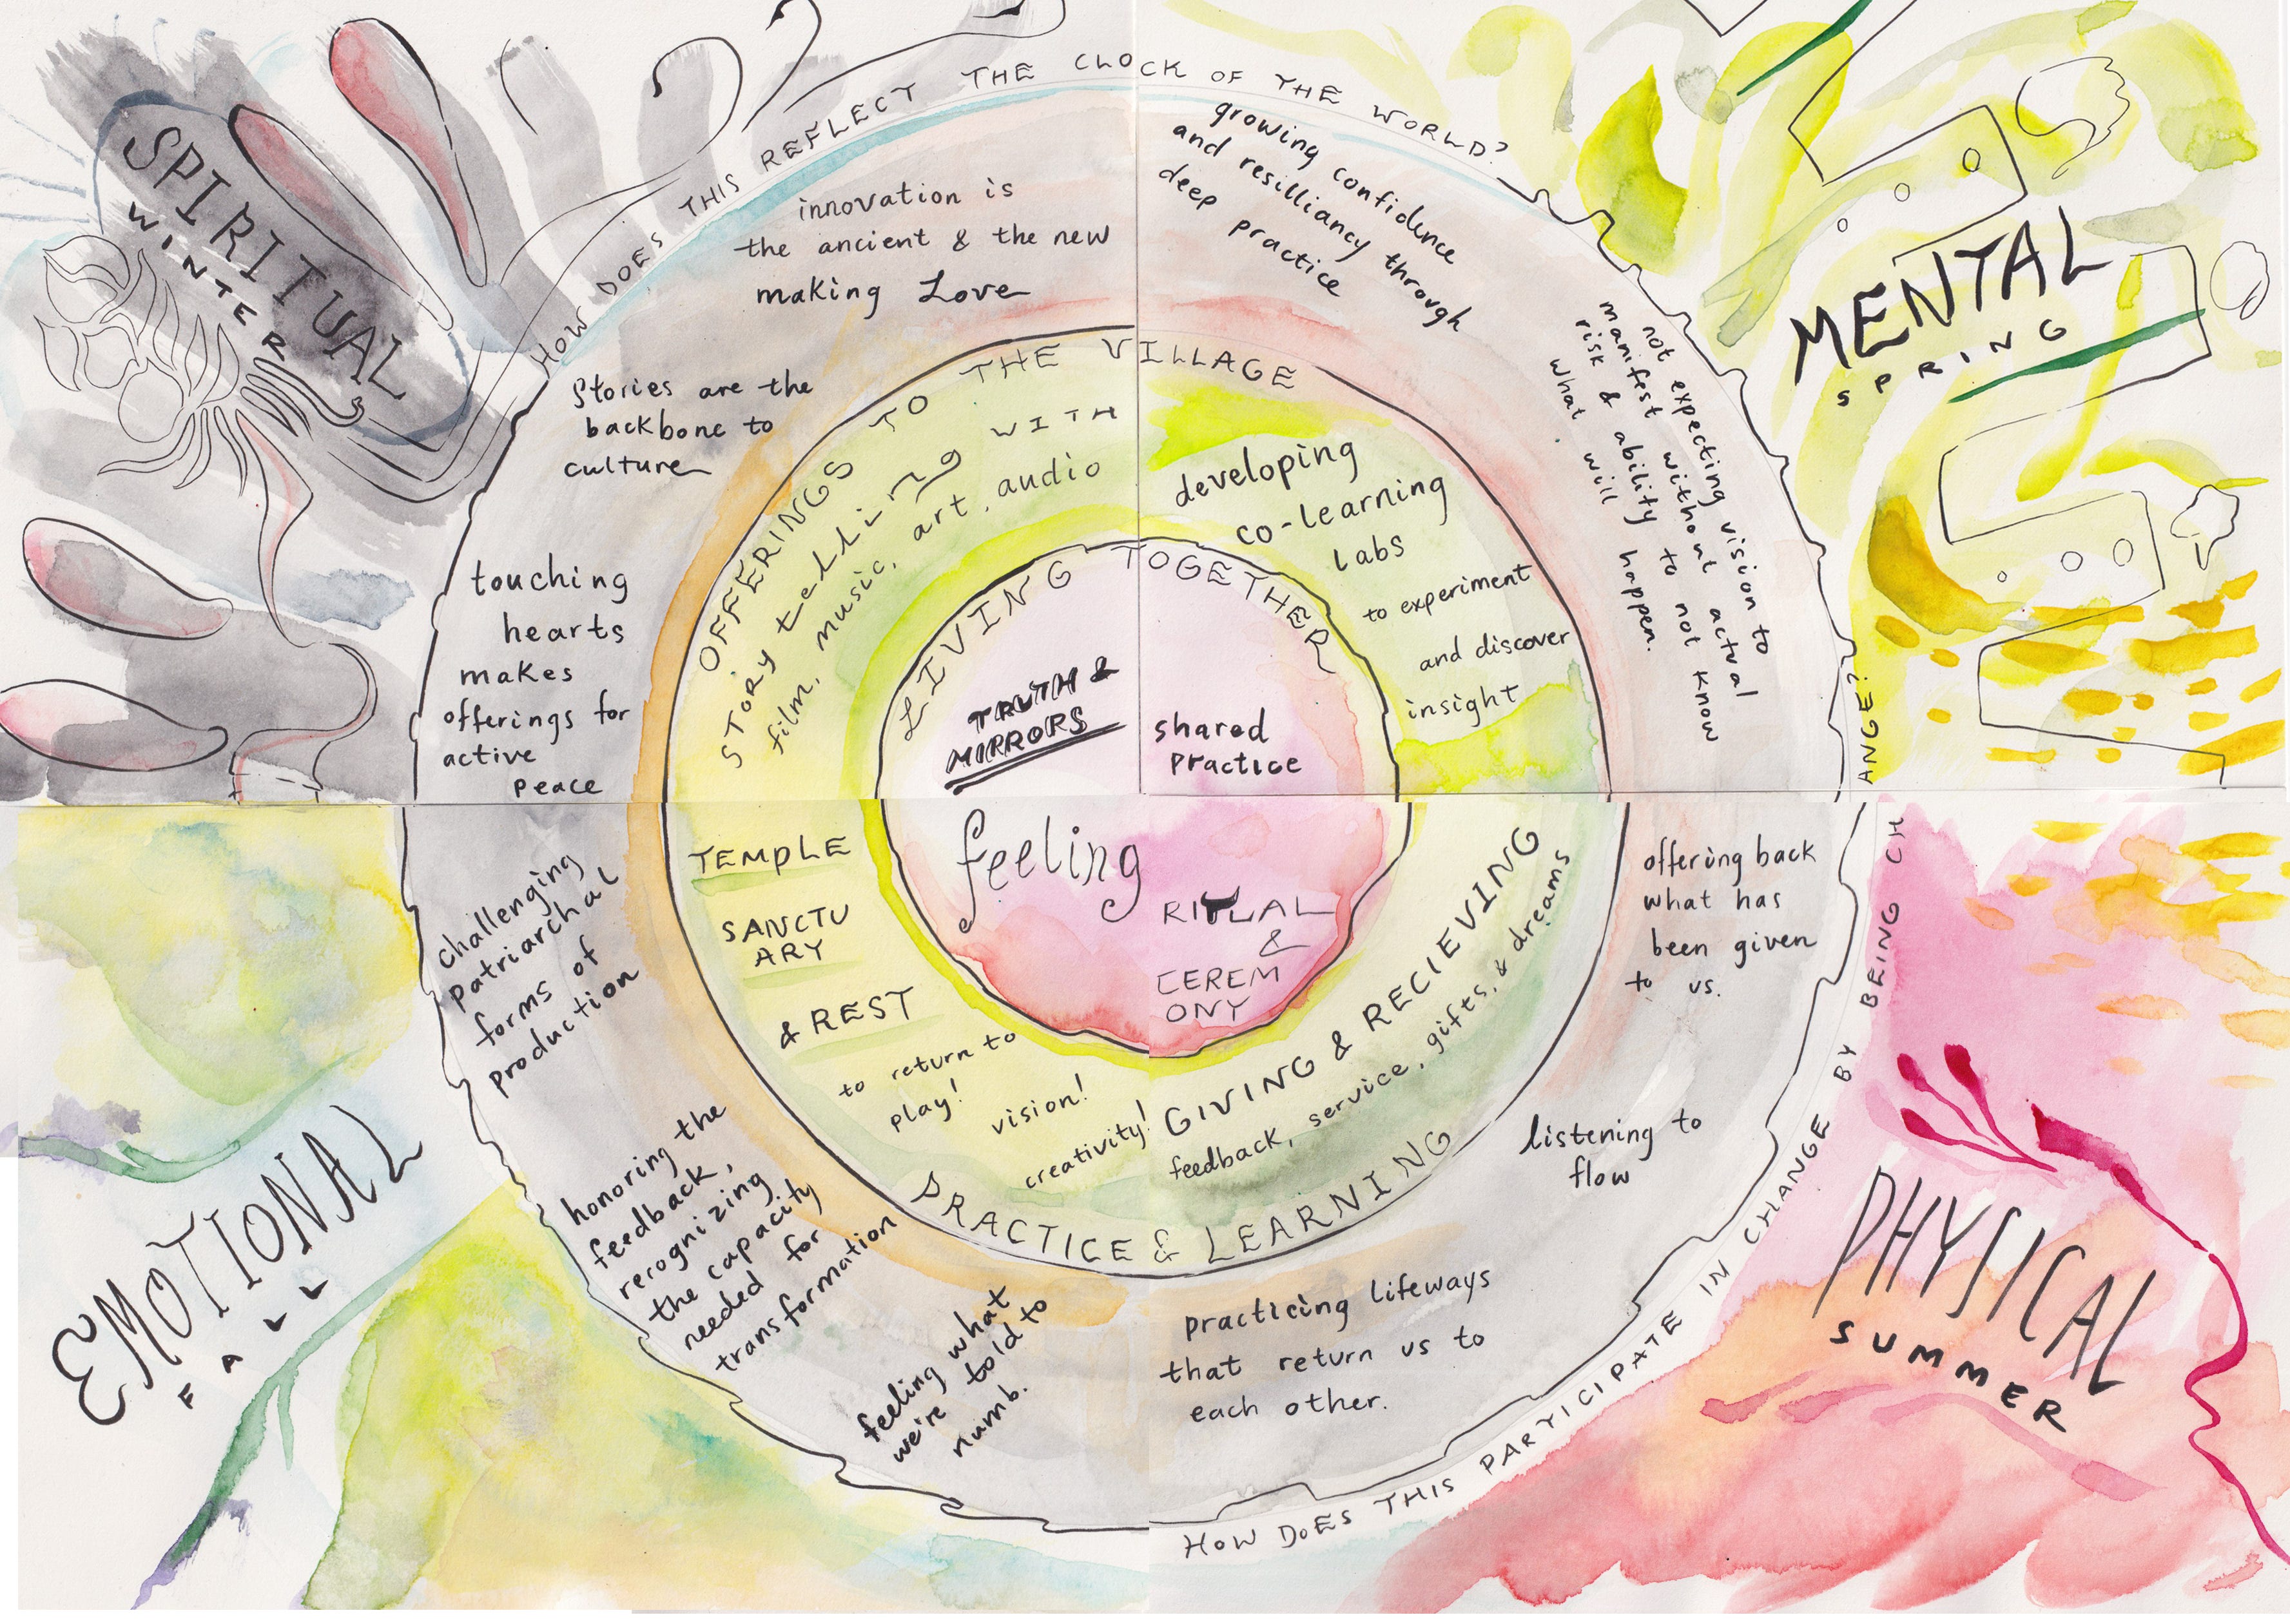 HOW DOES THIS REFLECT THE CLOCK OF THE WORLD?
SPIRITUAL
WINTER
innovation is
the ancient & the new
making Love
Stories are the
backbone to
culture
touching
hearts
makes
offerings for
active
peace
growing confidence
and resilliancy through
deep practice
not expecting vision to
manifest without actual
risk & ability to not know
what will happen.
MENTAL
SPRING
OFFERINGS TO THE VILLAGE
STORY telling WITH
film, music, art, audio
developing
co-learning
labs
to experiment
and discover
insight
LIVING TOGETHER
TRUTH &
MIRRORS
shared
practice
feeling
RITUAL
&
CEREM
ONY
TEMPLE
SANCTU
ARY
& REST
to return to
play!
vision!
creativity!
GIVING & RECIEVING
feedback, service, gifts, & dreams
PRACTICE & LEARNING
challenging
patriarchal
forms of
production
honoring the
feedback,
recognizing
the capacity
needed for
transformation
feeling what
we're told to
numb.
offering back
what has
been given
to us.
listening to
flow
practicing lifeways
that return us to
each other.
EMOTIONAL
FALL
PHYSICAL
SUMMER
HOW DOES THIS PARTICIPATE IN CHANGE BY BEING CHANGE?